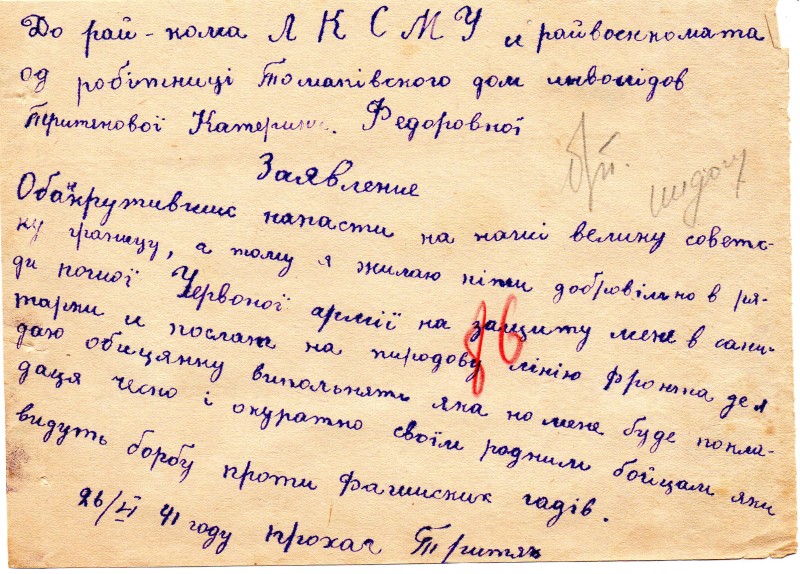 До рай-кома ЛКСМУ и райвоєнкомата
од робітниці Томаківского дом инволідов
Федоровної
Заявление
напасти на нашу велику советс-
ку границу, а тому я жилаю піти добровільно в ря-
ди нашої Червоної армії на защиту мене в сани-
тарки и послать на пиродову лінію фронта де я
даю обицянку виполнять яка на мене буде покла-
даця чесно і окуратно своїм родним бойцам яки
видуть борбу проти фашиских гадів.
26/VI 41 году прохач Тритяк
86